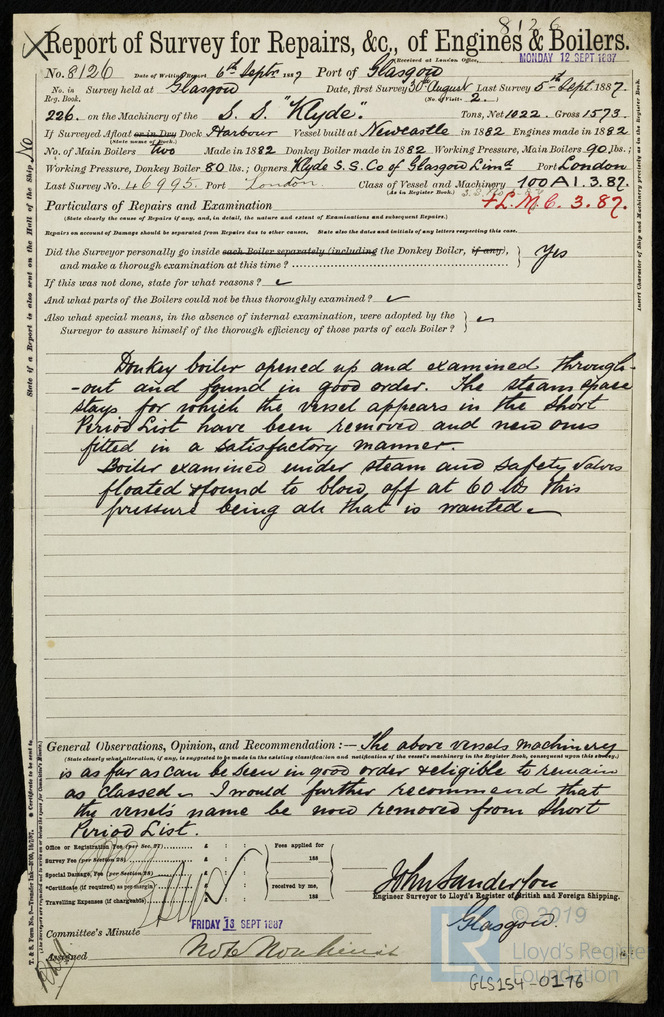 8126
Report of Survey for Repairs, &c., of Engines & Boilers.
Received at London Office, MONDAY 12 SEPT 1887
No. 8126 Date of Writing Report 6th Septr 1887 Port of Glasgow
No. in Reg. Book. Survey held at Glasgow Date, first Survey 30th August Last Survey 5th Sept. 1887.
(No. of Visits 2.)
226. on the Machinery of the S. S. "Klyde". Tons, Net 1022. Gross 1573.
If Surveyed Afloat or in Dry Dock Harbour Vessel built at Newcastle in 1882 Engines made in 1882
(State name of Dock.)
No. of Main Boilers two Made in 1882 Donkey Boiler made in 1882 Working Pressure, Main Boilers 90 lbs.;
Working Pressure, Donkey Boiler 80 lbs.; Owners Klyde S. S. Co of Glasgow Limd Port London
Last Survey No. 46995. Port London. Class of Vessel and Machinery 100 A1. 3.87.
(As in Register Book.)
Particulars of Repairs and Examination + L. M. C. 3.87.
(State clearly the cause of Repairs if any, and, in detail, the nature and extent of Examinations and subsequent Repairs.)
Repairs on account of Damage should be separated from Repairs due to other causes. State also the dates and initials of any letters respecting this case.
Did the Surveyor personally go inside each Boiler separately (including the Donkey Boiler, if any), and make a thorough examination at this time? Yes
If this was not done, state for what reasons?
And what parts of the Boilers could not be thus thoroughly examined?
Also what special means, in the absence of internal examination, were adopted by the
Surveyor to assure himself of the thorough efficiency of those parts of each Boiler?
Donkey boiler opened up and examined through-
-out and found in good order. The steam space
stays for which the vessel appears in the Short
Period List have been removed and new ones
fitted in a satisfactory manner.
Boiler examined under steam and safety valves
floated & found to blow off at 60 lbs this
pressure being all that is wanted.
General Observations, Opinion, and Recommendation:— The above vessels machinery
(State clearly what alteration, if any, is suggested to be made in the existing classification and notification of the vessel's machinery in the Register Book, consequent upon this survey.)
is as far as can be seen in good order & eligible to remain
as classed. I would further recommend that
the vessel's name be now removed from Short
Period List.
Office or Registration Fee (per Sec. 27) £ : : Fees applied for
Survey Fee (per Section 28) £ : : 188
Special Damage, Fee (per Section 28) £ : :
*Certificate (if required) as per margin £ : : received by me,
Travelling Expenses (if chargeable) £ : : 188
John Sanderson
Engineer Surveyor to Lloyd's Register of British and Foreign Shipping.
Glasgow.
Committee's Minute FRIDAY 13 SEPT 1887
Assigned
State if a Report is also sent on the Hull of the Ship No
Insert Character of Ship and Machinery precisely as in the Register Book.
© 2019
Lloyd's Register
Foundation
LR
GLS154-0176